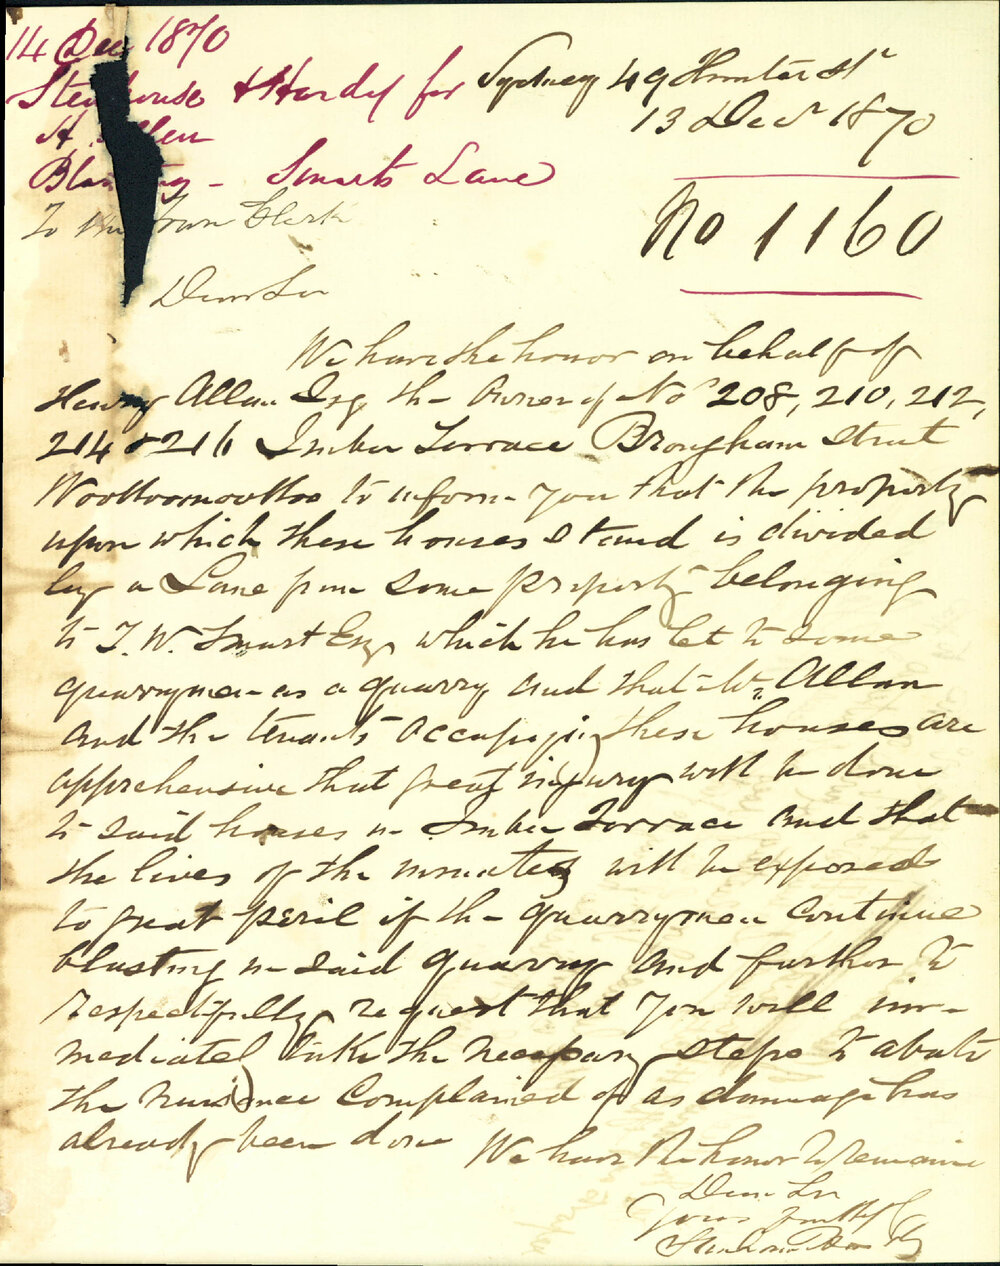 14 Dec 1870
Stenhouse & Hardy for
H. Allen
Blasting - Smarts Lane
Sydney 49 Hunter St
13 Decr 1870
No 1160
To the Town Clerk
Dear Sir
We have the honor on behalf of
Henry Allan Esq the Owner of Nos 208, 210, 212,
214 & 216 Terrace Brougham Street
Woolloomoolloo to inform you that the property
upon which these houses stand is divided
by a Lane from some property belonging
to T. W. Smart Esq which he has let to some
quarrymen as a quarry and that Mr. Allan
and the tenants occupying these houses are
apprehensive that great injury will be done
to said houses in Terrace and that
the lives of the inmates will be exposed
to great peril if the quarrymen continue
blasting in said quarry and further to
respectfully request that you will im-
mediately take the necessary steps to abate
the nuisance complained of as damage has
already been done
We have the honor to remain
Dear Sir
Yours faithfully
Stenhouse & Hardy